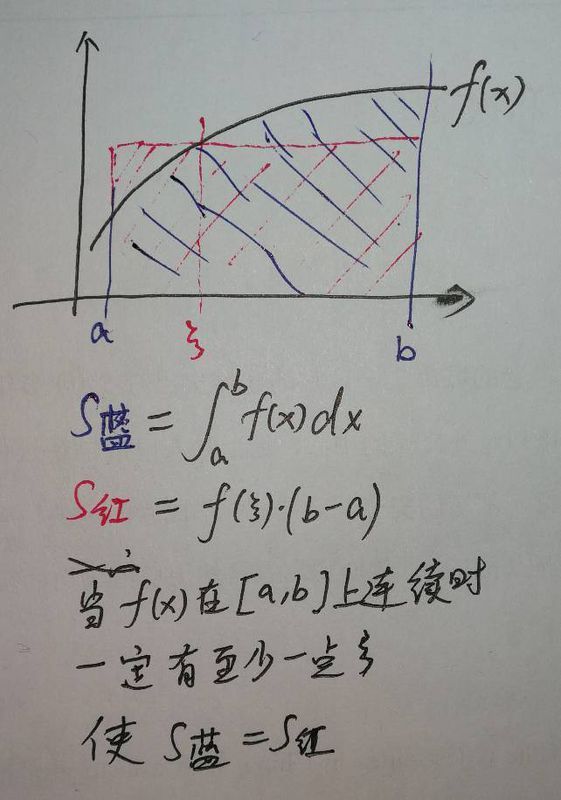 f(x)
a ξ b
S蓝 = ∫ₐᵇ f(x)dx
S红 = f(ξ)·(b-a)
当 f(x) 在 [a,b] 上连续时
一定有至少一点 ξ
使 S蓝 = S红